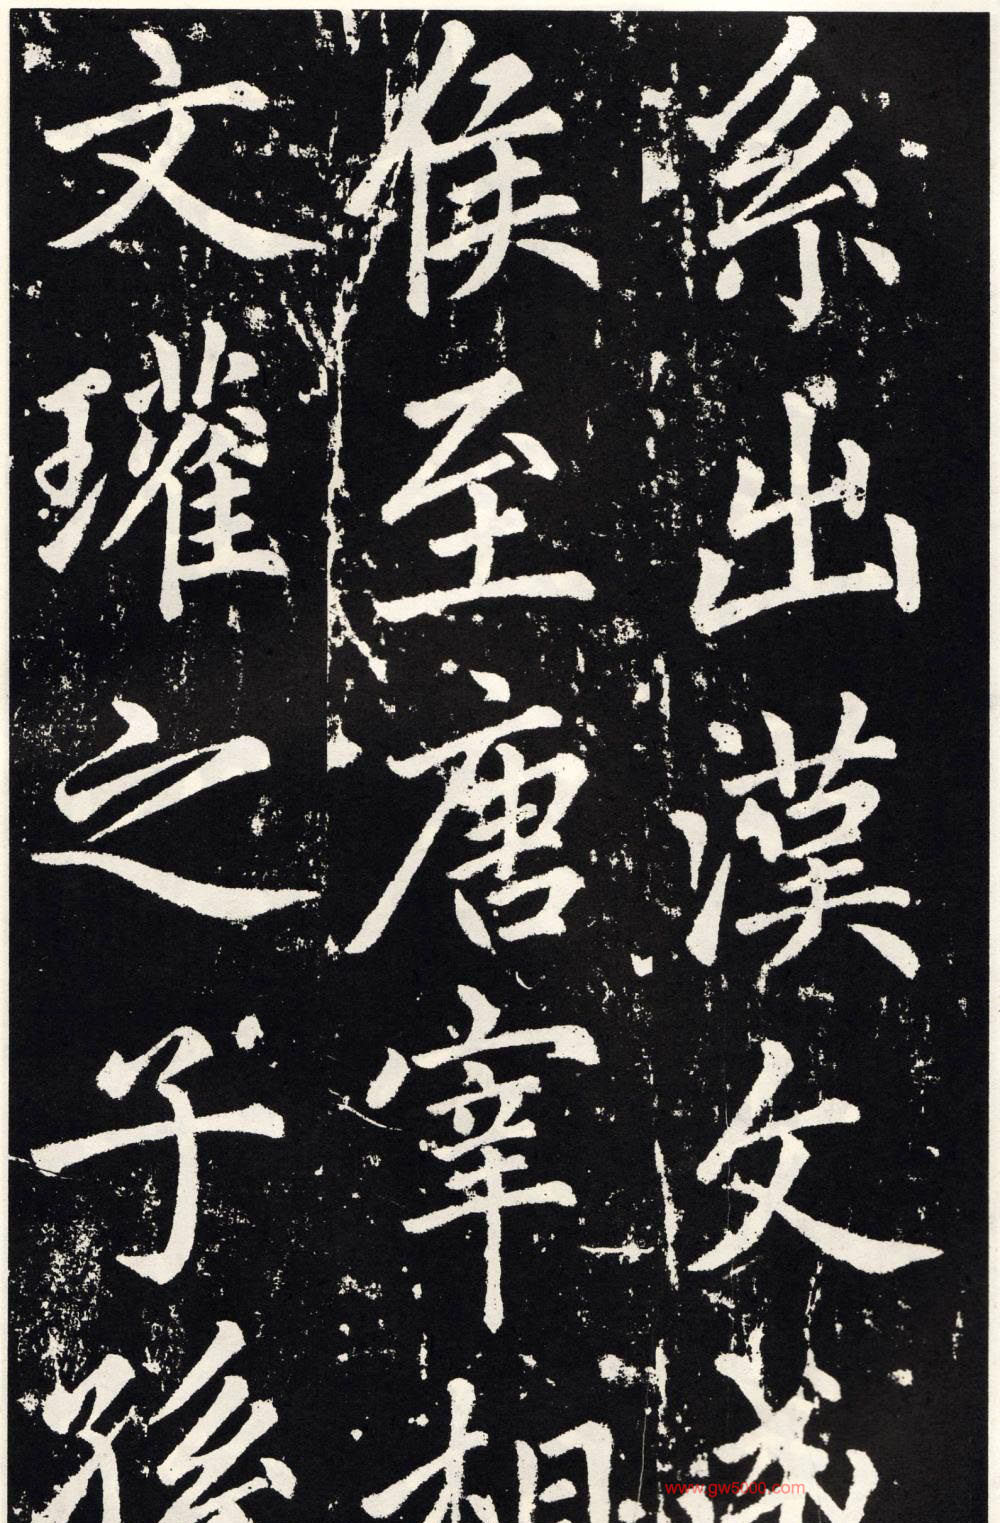 系出漢文成
侯至唐宰相
文瓘之子孫
www.gw5000.com